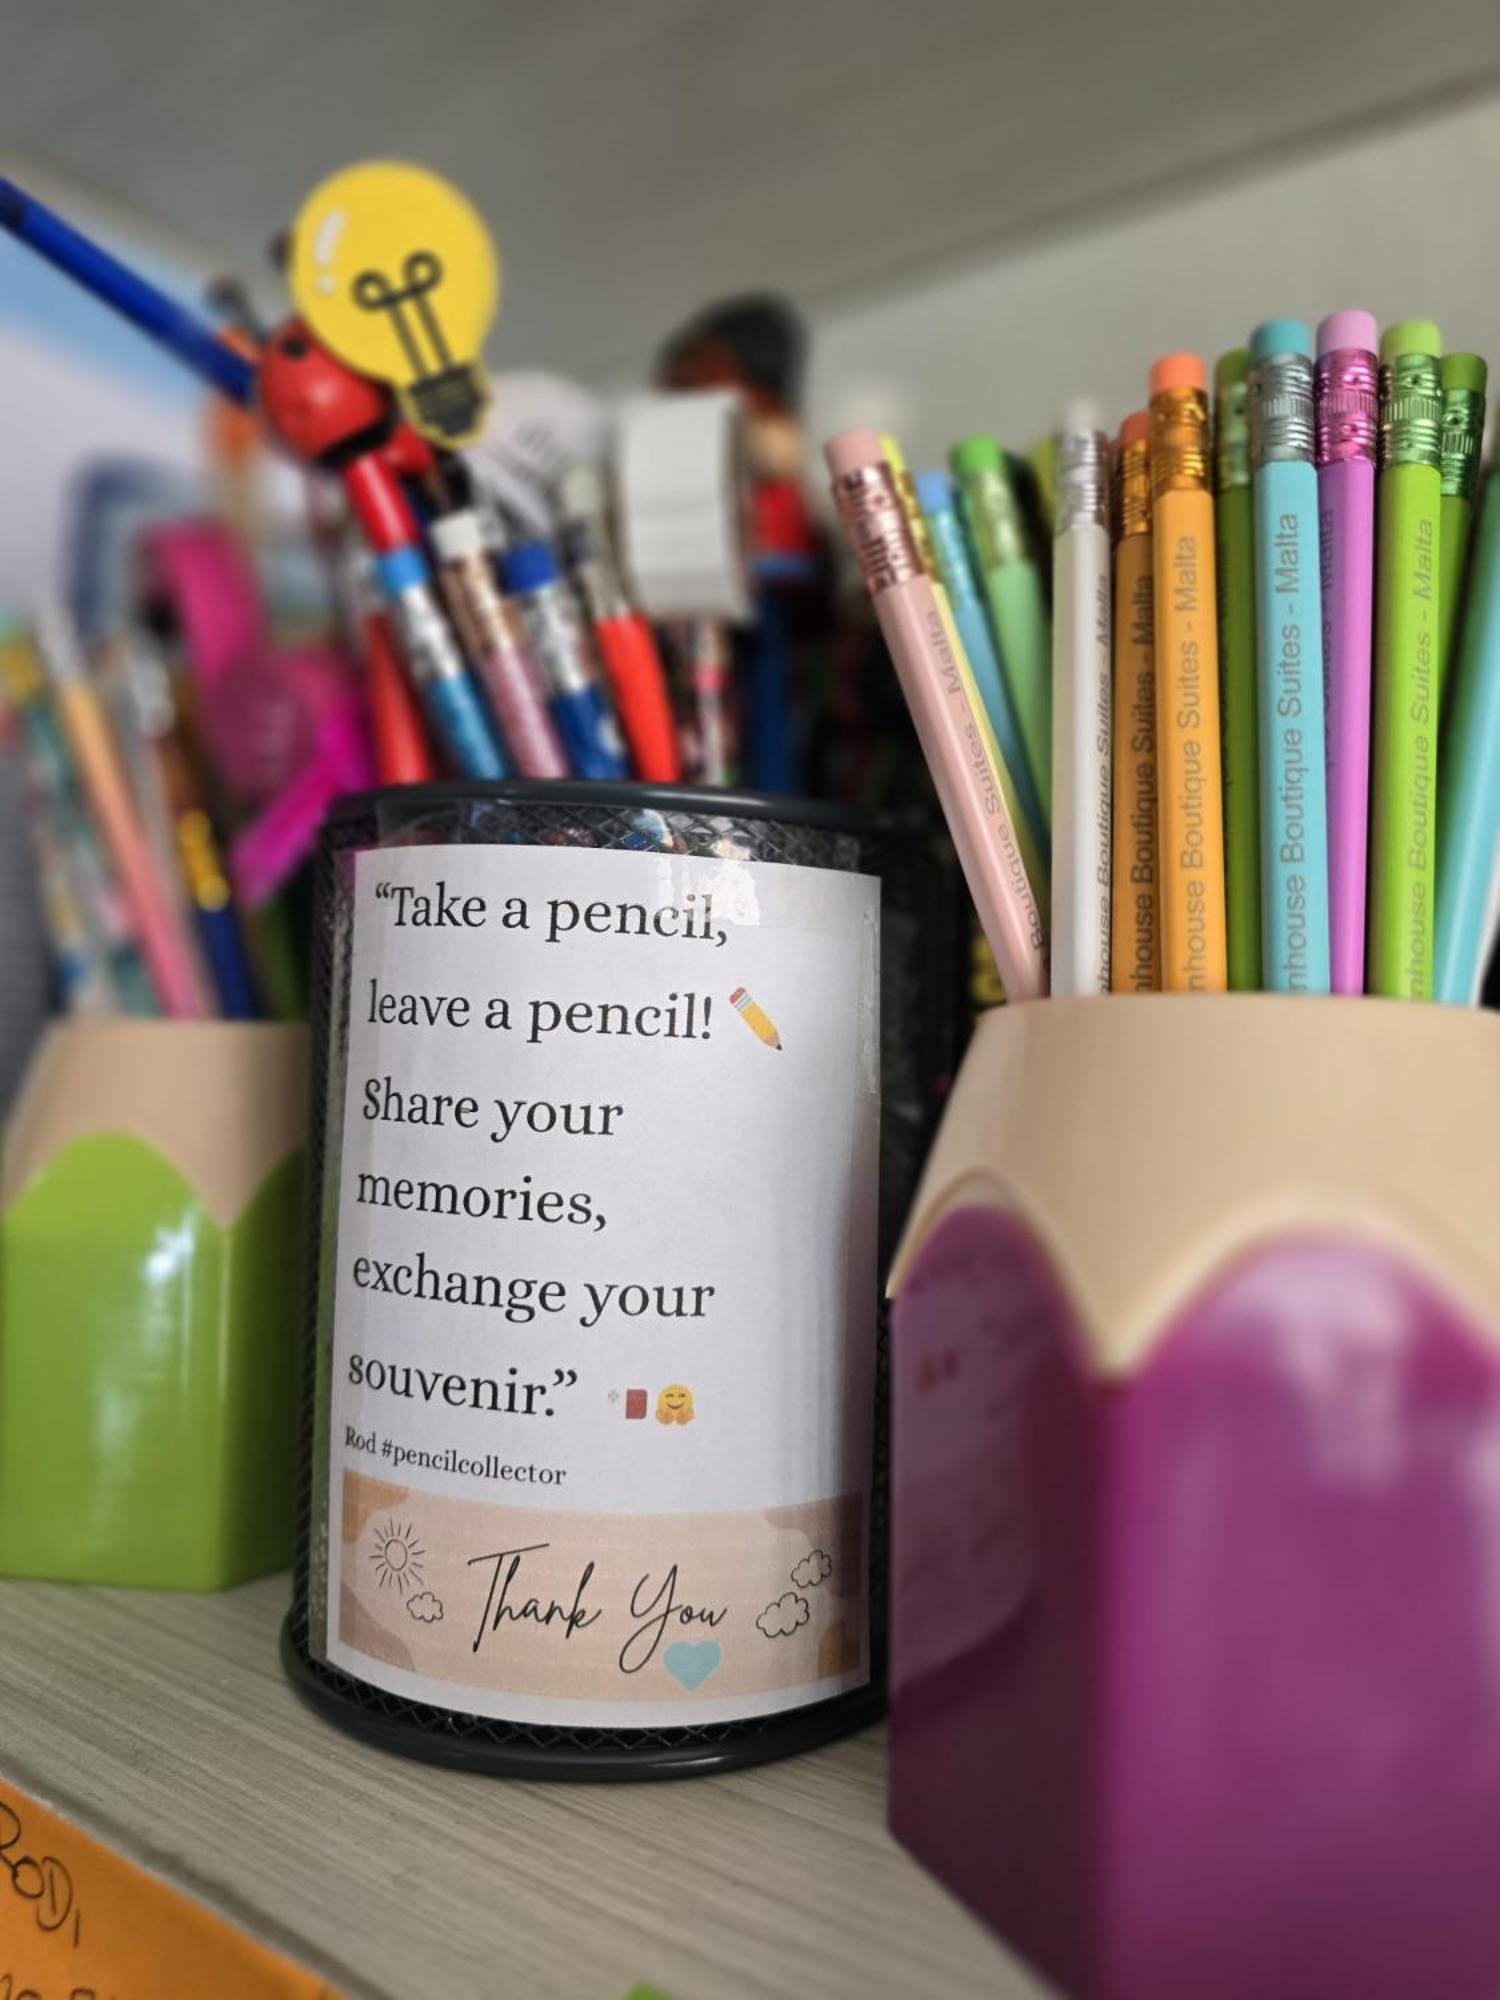 “Take a pencil,
leave a pencil!
Share your
memories,
exchange your
souvenir.”
Rod #pencilcollector
Thank You
Boutique Suites - Malta
house Boutique Suites - Malta
nhouse Boutique Suites - Malta
nhouse Boutique Suites - Malta
nhouse Boutique Suites - Malta
nhouse Boutique Suites - Malta
RODI